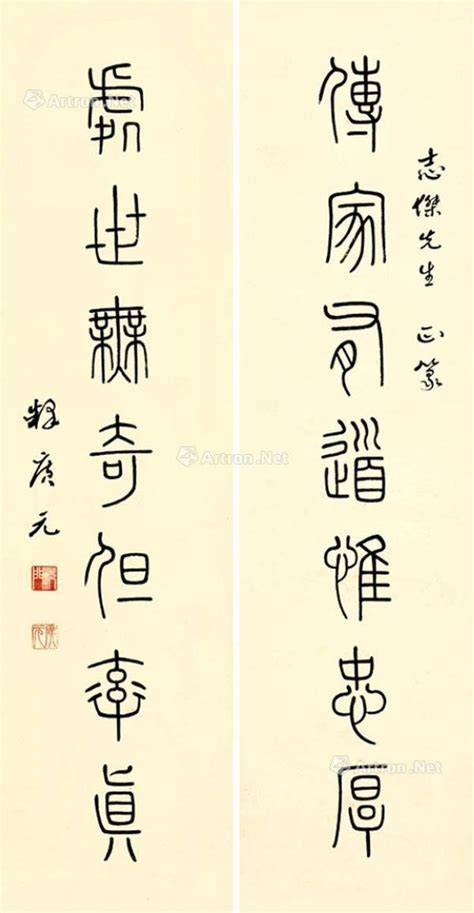 志傑先生 正篆
傳家有道惟忠厚
處世無奇但率真
釋廣元
Artron.Net
Artron.Net
Artron.Net